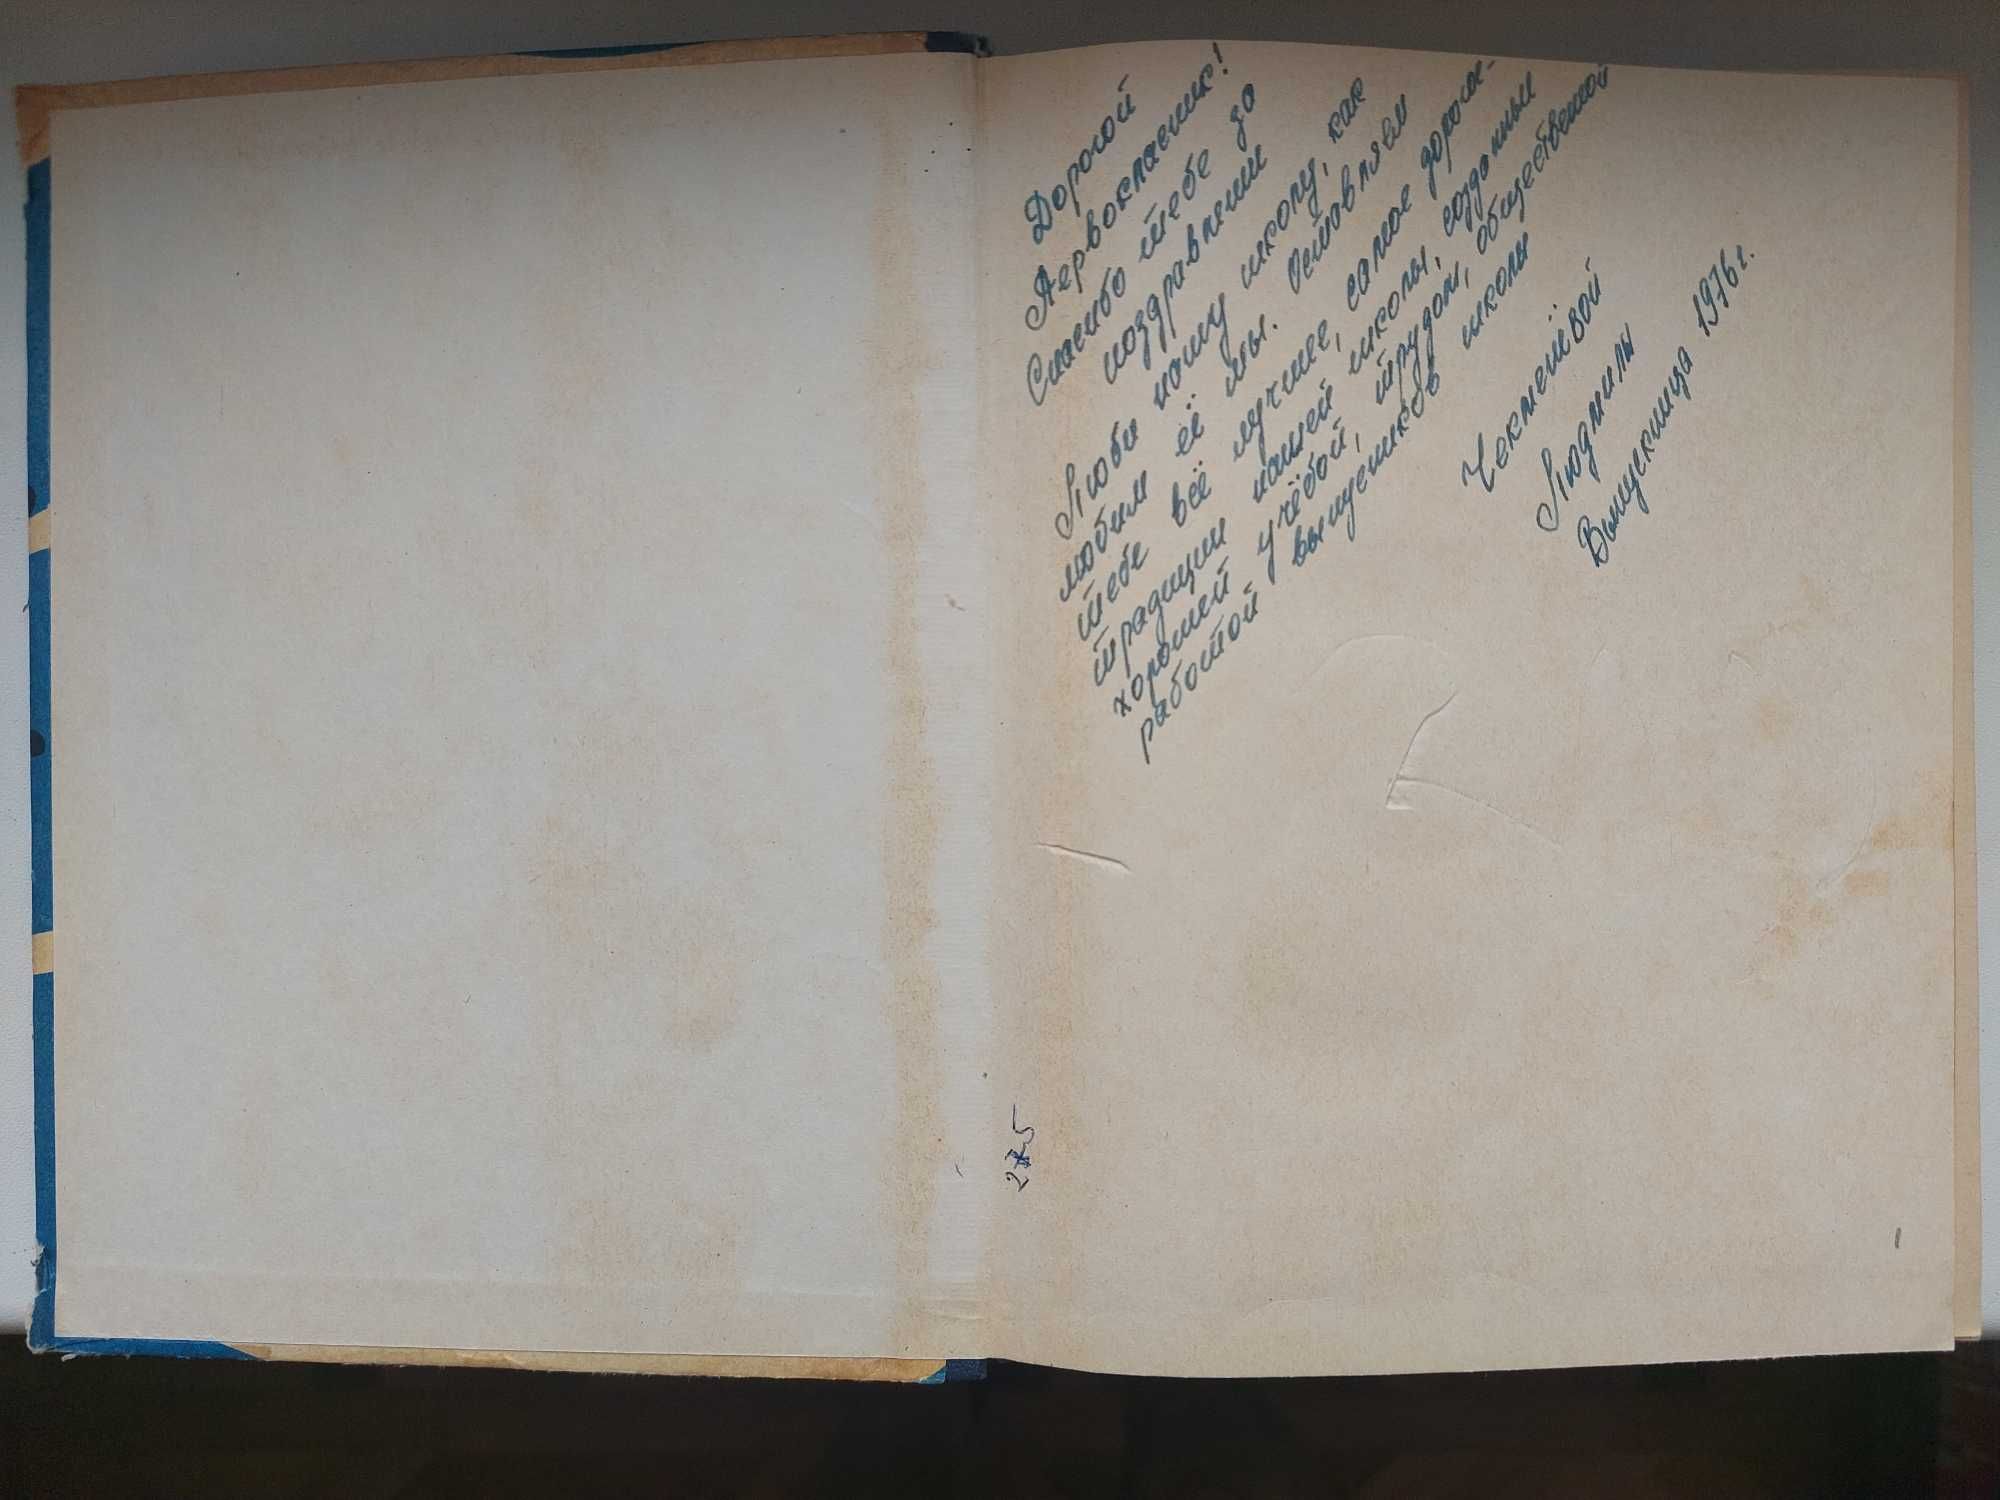 Дорогой
Первоклассник!
Спасибо тебе за
поздравления
Люби нашу школу, как
любим её мы. Оставляем
тебе всё лучшее, самое дороже-
традиции нашей школы, созданные
хорошей учёбой, трудом, общественной
работой выпускников школы
Чекменёвой
Людмилы
Выпускница 1976 г.